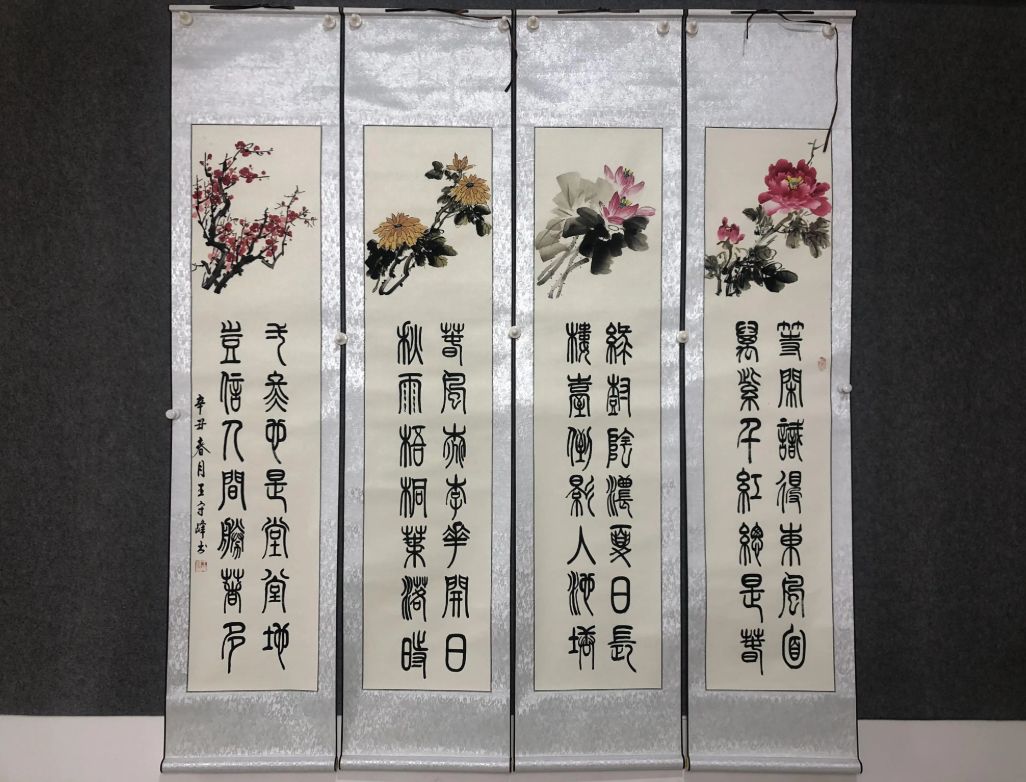 等閑識得東風面
萬紫千紅總是春
綠樹陰濃夏日長
樓臺倒影入池塘
春風桃李花開日
秋雨梧桐葉落時
是堂堂地
豈信人間勝著多
辛丑春月王守峰书